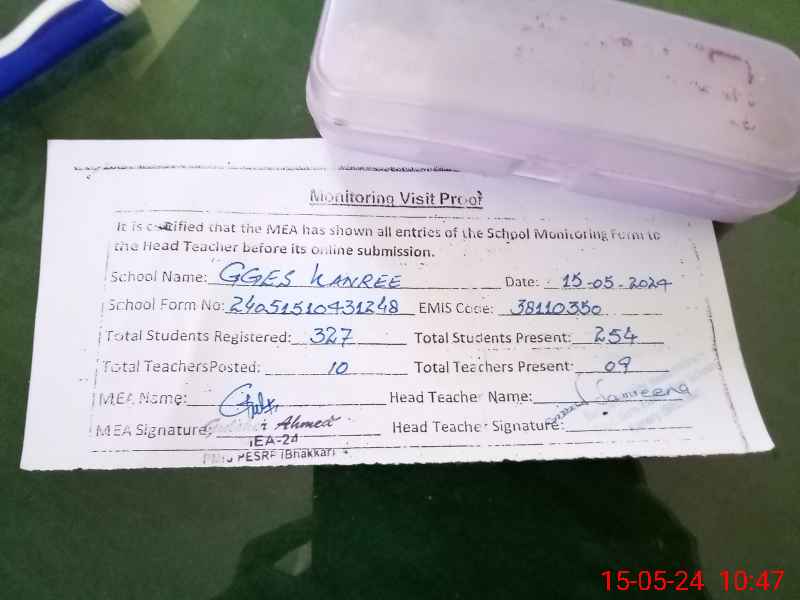 Monitoring Visit Proof
It is certified that the MEA has shown all entries of the School Monitoring Form to
the Head Teacher before its online submission.
School Name: GGES KANREE Date: 15-05-2024
School Form No: 24051510431248 EMIS Code: 38110350
Total Students Registered: 327 Total Students Present: 254
Total TeachersPosted: 10 Total Teachers Present: 09
MEA Name: Head Teacher Name: Samreena
MEA Signature: Ahmed Head Teacher Signature:
MEA-24
PESRP (Bhakkar)
15-05-24 10:47